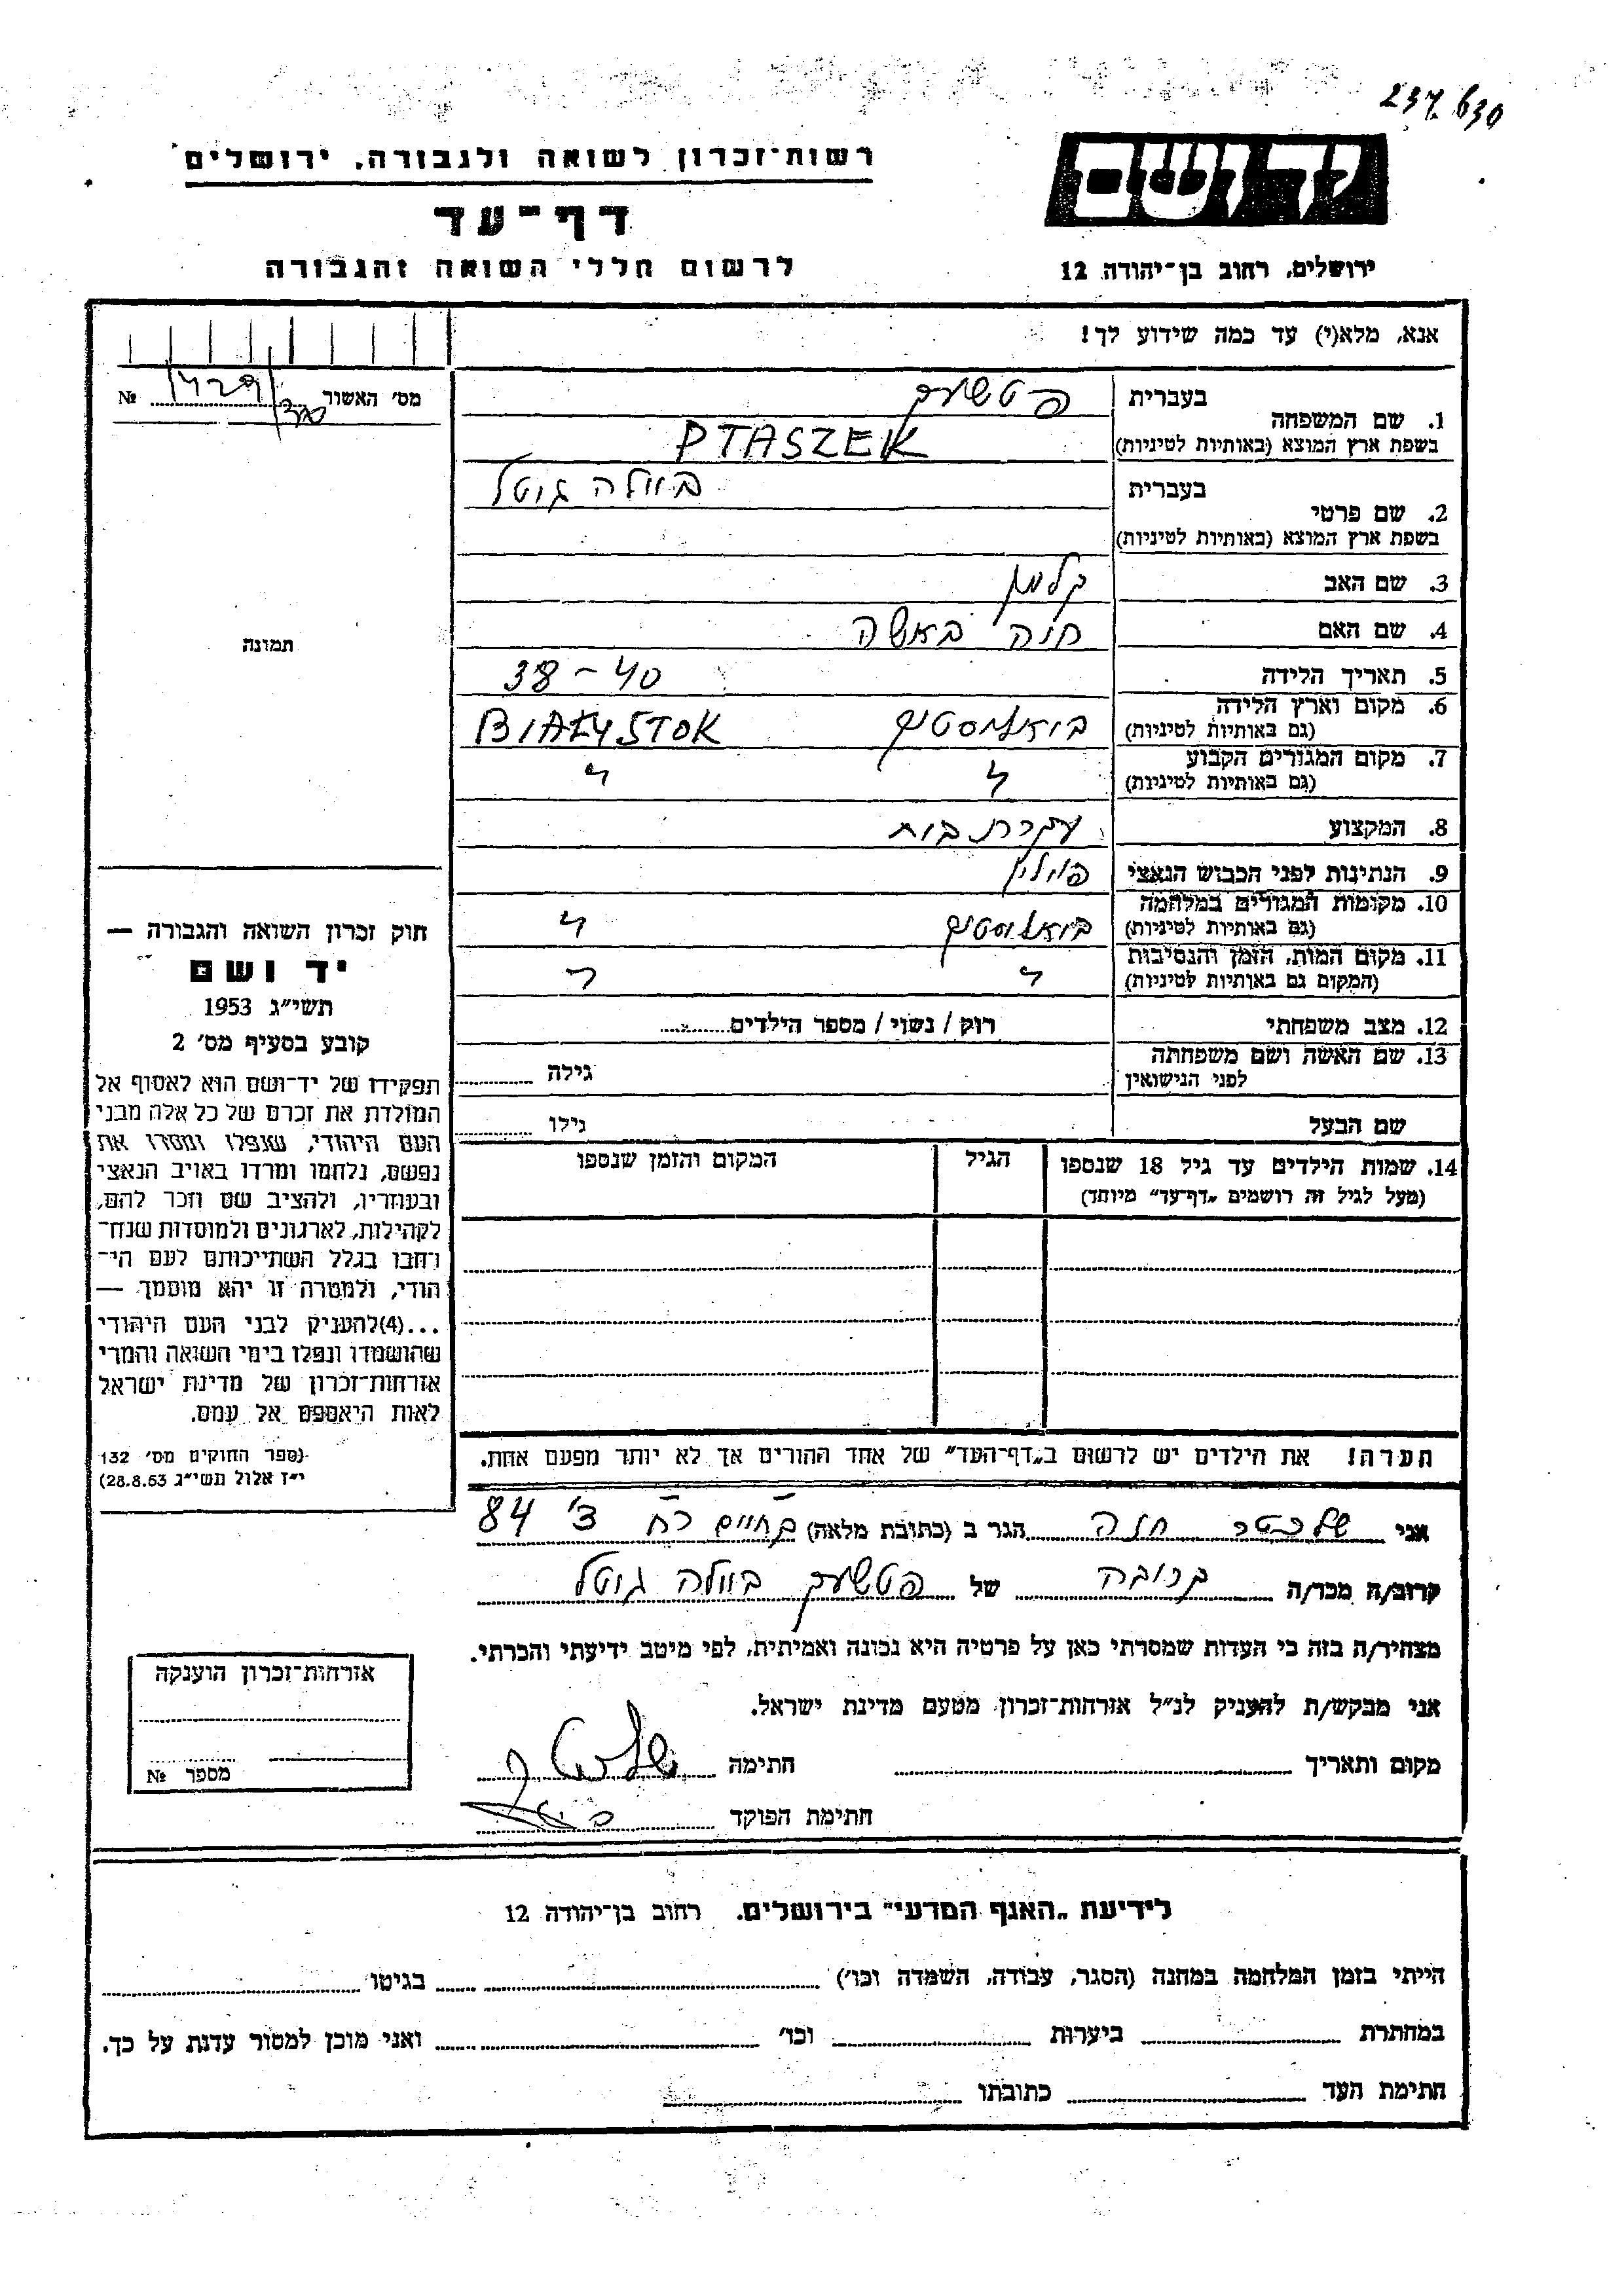 237.630
יד ושם
ירושלים, רחוב בן־יהודה 12
רשות־זכרון לשואה ולגבורה, ירושלים
דף־עד
לרשום חללי השואה והגבורה
אנא, מלא(י) עד כמה שידוע לך!
מס׳ האשור № 1429
1. שם המשפחה
בעברית פטשעק
בשפת ארץ המוצא (באותיות לטיניות) PTASZEK
2. שם פרטי
בעברית ביילה גוטל
בשפת ארץ המוצא (באותיות לטיניות)
3. שם האב קלמן
4. שם האם חנה באשה
5. תאריך הלידה 38-40
6. מקום וארץ הלידה (גם באותיות לטיניות) ביאליסטוק BIAŁYSTOK
7. מקום המגורים הקבוע (גם באותיות לטיניות) " "
8. המקצוע עקרת בית
9. הנתינות לפני הכבוש הנאצי פולין
10. מקומות המגורים במלחמה (גם באותיות לטיניות) ביאליסטוק "
11. מקום המות, הזמן והנסיבות (המקום גם באותיות לטיניות) " "
12. מצב משפחתי רוק / נשוי / מספר הילדים
13. שם האשה ושם משפחתה לפני הנישואין גילה
שם הבעל גילו
14. שמות הילדים עד גיל 18 שנספו
(מעל לגיל זה רושמים „דף־עד” מיוחד)
הגיל
המקום והזמן שנספו
תמונה
חוק זכרון השואה והגבורה —
יד ושם
תשי״ג 1953
קובע בסעיף מס׳ 2
תפקידו של יד־ושם הוא לאסוף אל
המולדת את זכרם של כל אלה מבני
העם היהודי, שנפלו ומסרו את
נפשם, נלחמו ומרדו באויב הנאצי
ובעוזריו, ולהציב שם וזכר להם,
לקהילות, לארגונים ולמוסדות שנח־
רבו בגלל השתייכותם לעם הי־
הודי, ולמטרה זו יהא מוסמך —
...(4)להעניק לבני העם היהודי
שהושמדו ונפלו בימי השואה והמרי
אזרחות־זכרון של מדינת ישראל
לאות היאספם אל עמם.
(ספר החוקים מס׳ 132
י״ז אלול תשי״ג 28.8.53)
הערה! את הילדים יש לרשום ב„דף־העד” של אחד ההורים אך לא יותר מפעם אחת.
אני שלכטר חנה הגר ב (כתובת מלאה) ק חיים רח צ׳ 84
קרוב/ה מכר/ה קרובה של פטשעק ביילה גוטל
מצהיר/ה בזה כי העדות שמסרתי כאן על פרטיה היא נכונה ואמיתית, לפי מיטב ידיעתי והכרתי.
אני מבקש/ת להעניק לנ״ל אזרחות־זכרון מטעם מדינת ישראל.
מקום ותאריך חתימה
חתימת הפוקד
אזרחות־זכרון הוענקה
מספר №
לידיעת „האגף המדעי” בירושלים. רחוב בן־יהודה 12
הייתי בזמן המלחמה במחנה (הסגר, עבודה, השמדה וכו׳) בגיטו
במחתרת ביערות וכו׳ ואני מוכן למסור עדות על כך.
חתימת העד כתובתו